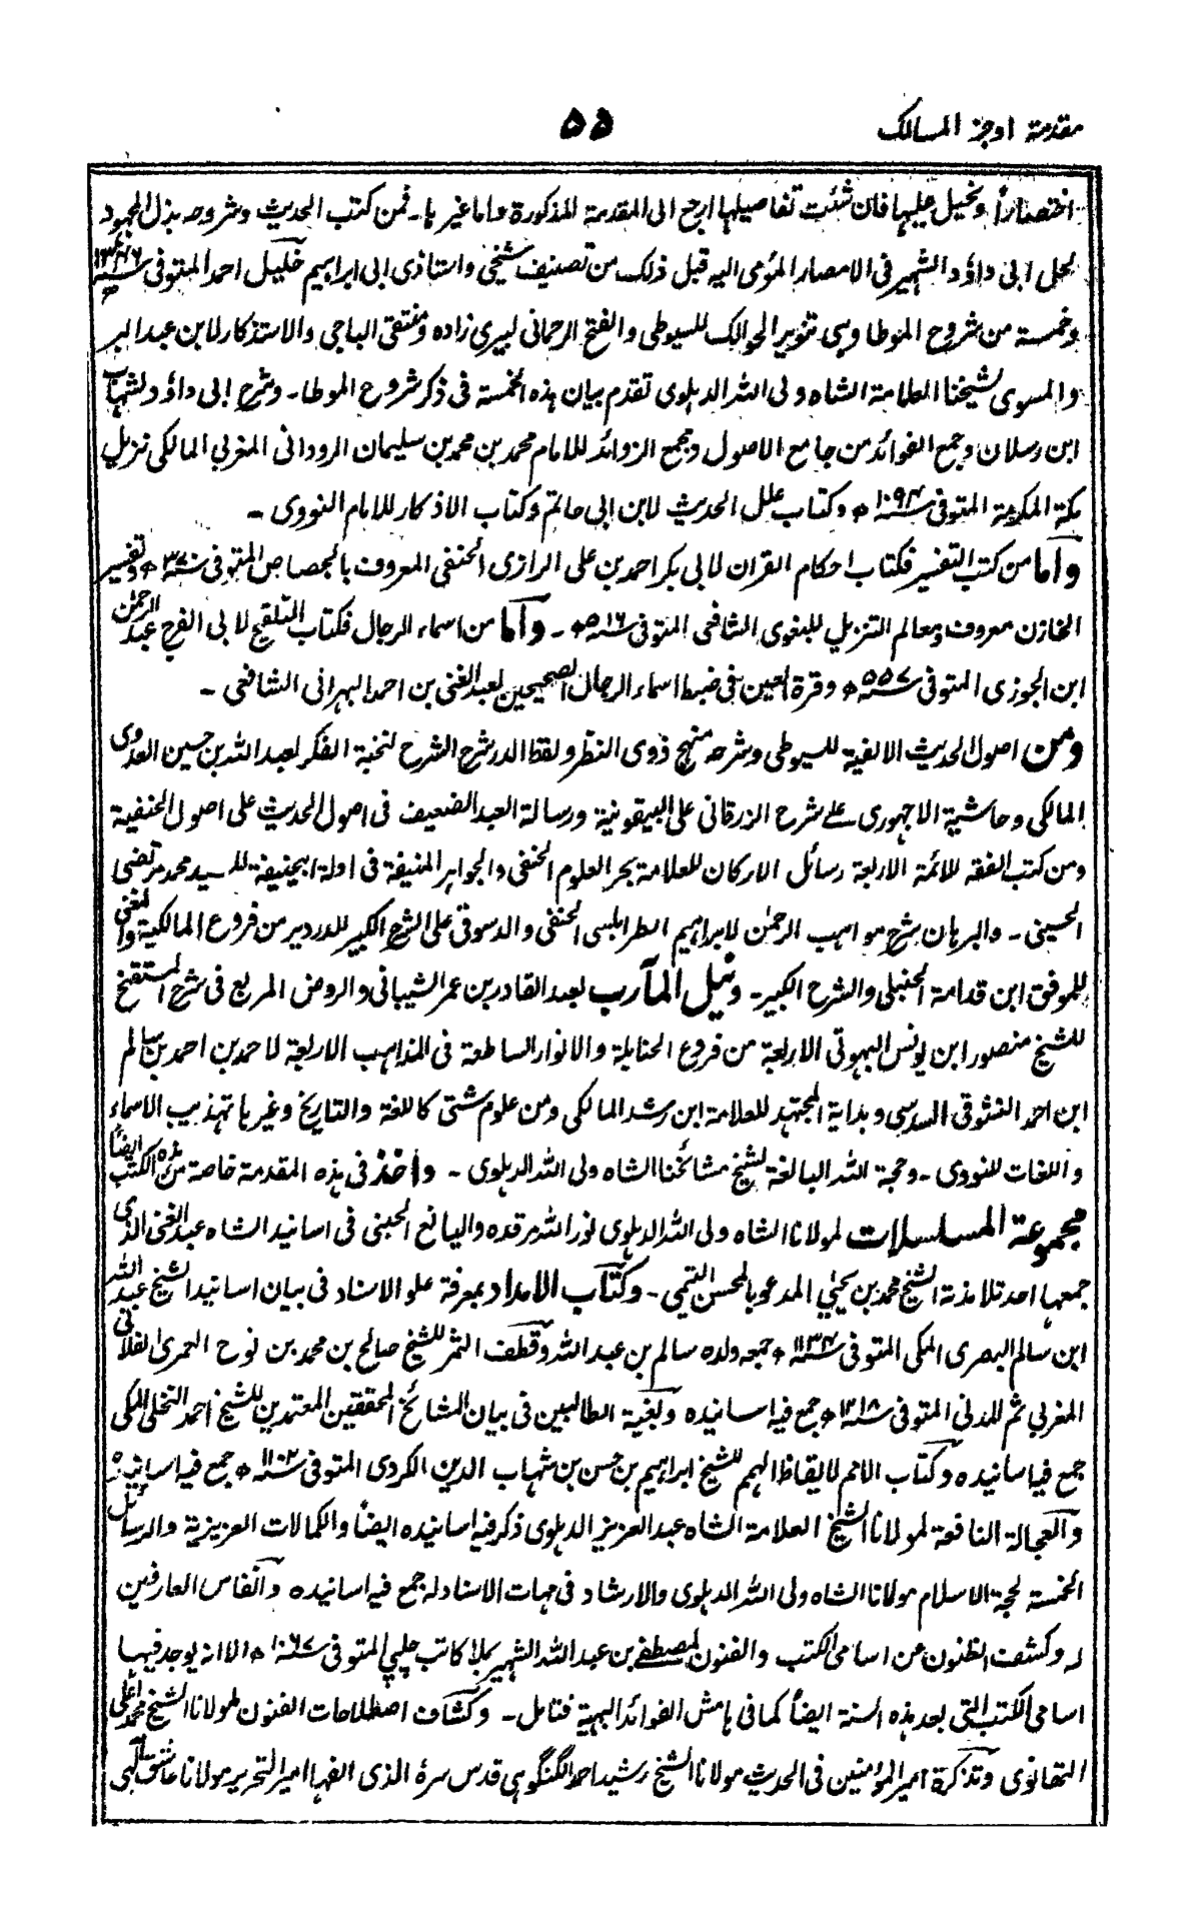 مقدمة اوجز المسالك
۵۵
اختصاراً ونحيل عليها فان شئت تفاصيلها ارجع الى المقدمة المذكورة واما غيرها۔ فمن كتب الحديث وشروحه بذل المجهود
لحل ابى داؤد الشهير فى الامصار المؤمى اليه قبل ذلك من تصنيف شيخى واستاذى ابى ابراهيم خليل احمد المتوفى سنة ۱۳۴۶ھ
وخمسة من شروح المؤطا وهى تنوير الحوالك للسيوطى والفتح الرحمانى لبيرى زاده ومنتقى الباجى والاستذكار لابن عبد البر
والمسوى لشيخنا العلامة الشاه ولى الله الدهلوى تقدم بيان هذه الخمسة فى ذكر شروح الموطا۔ وشرح ابى داؤد لشهاب
ابن رسلان وجمع الفوائد من جامع الاصول ومجمع الزوائد للامام محمد بن محمد بن سليمان الرودانى المغربى المالكى نزيل
مكة المكرمة المتوفى سنة ۱۰۹۴ھ وكتاب علل الحديث لابن ابى حاتم وكتاب الاذكار للامام النووى ۔
واما من كتب التفسير فكتاب احكام القران لابى بكر احمد بن على الرازى الحنفى المعروف بالجصاص المتوفى سنة ۳۷۰ھ وتفسير
الخازن معروف ومعالم التنزيل للبغوى الشافعى المتوفى سنة ۵۱۶ھ ۔ واما من اسماء الرجال فكتاب التلقيح لابى الفرج عبد الرحمٰن
ابن الجوزى المتوفى سنة ۵۵۷ھ وقرة العين فى ضبط اسماء الرجال الصحيحين لعبد الغنى بن احمد البهرانى الشافعى ۔
ومن اصول الحديث الالفية للسيوطى وشرحه منهج ذوى النظر ولقط الدر شرح الشرح لنخبة الفكر لعبد الله بن حسين العدوى
المالكى وحاشية الاجهورى على شرح الزرقانى على البيقونية ورسالة العبد الضعيف فى اصول الحديث على اصول الحنفية
ومن كتب الفقه للائمة الاربعة رسائل الاركان للعلامة بحر العلوم الحنفى والجواهر المنيفة فى ادلة ابيحنيفة للسيد محمد مرتضى
الحسينى ۔ والبرهان شرح مواهب الرحمٰن لابراهيم الطرابلسى الحنفى والدسوقى على الشرح الكبير للدردير من فروع المالكية والمغنى
للموفق ابن قدامة الحنبلى والشرح الكبير۔ ونيل المآرب لعبد القادر بن عمر الشيبانى والروض المربع فى شرح المستقنع
للشيخ منصور ابن يونس البهوتى الاربعة من فروع الحنابلة والانوار الساطعة فى المذاهب الاربعة لاحمد بن احمد بن سالم
ابن احمد السدسى وبداية المجتهد للعلامة ابن رشد المالكى ومن علوم شتى كاللغة والتاريخ وغيرها تهذيب الاسماء
واللغات للنووى ۔ وحجة الله البالغة لشيخ مشائخنا الشاه ولى الله الدهلوى ۔ واخذ فى هذه المقدمة خاصة من هذه الكتب ايضاً
مجموعة المسلسلات لمولانا الشاه ولى الله الدهلوى نور الله مرقده واليانع الجنى فى اسانيد الشاه عبد الغنى الذى
جمعها احد تلامذته الشيخ محمد بن يحيىٰ المدعو بالمحسن التيمى ۔ وكتاب الامداد بمعرفة علو الاسناد فى بيان اسانيد الشيخ عبد الله
ابن سالم البصرى المكى المتوفى سنة ۱۱۳۴ھ جمعه ولده سالم بن عبد الله وقطف الثمر للشيخ صالح بن محمد بن نوح العمرى الفلانى
المغربى ثم المدنى المتوفى سنة ۱۲۱۸ھ جمع فيه اسانيده وبغية الطالبين فى بيان المشائخ المحققين المعتمدين للشيخ احمد النخلى المكى
جمع فيها سانيده وكتاب الامم لايقاظ الهمم للشيخ ابراهيم بن حسن بن شهاب الدين الكردى المتوفى سنة ۱۱۰۲ھ جمع فيه اسانيده
والعجالة النافعة لمولانا الشيخ العلامة الشاه عبد العزيز الدهلوى ذكر فيه اسانيده ايضاً والكمالات العزيزية والرسائل
الخمسة لحجة الاسلام مولانا الشاه ولى الله الدهلوى والارشاد فى مهمات الاسناد له جمع فيه اسانيده وانفاس العارفين
له وكشف الظنون عن اسامى الكتب والفنون لمصطفے بن عبد الله الشهير بملا كاتب چلپى المتوفى سنة ۱۰۶۷ھ الا انه يوجد فيها
اسامى الكتب التى بعد هذه السنة ايضاً كما فى هامش الفوائد البهية فتامل ۔ وكشاف اصطلاحات الفنون لمولانا الشيخ محمد اعلى
التهانوى وتذكرة امير المؤمنين فى الحديث مولانا الشيخ رشيد احمد الگنگوهى قدس سره الذى الفها امير التحرير مولانا عاشق الهى